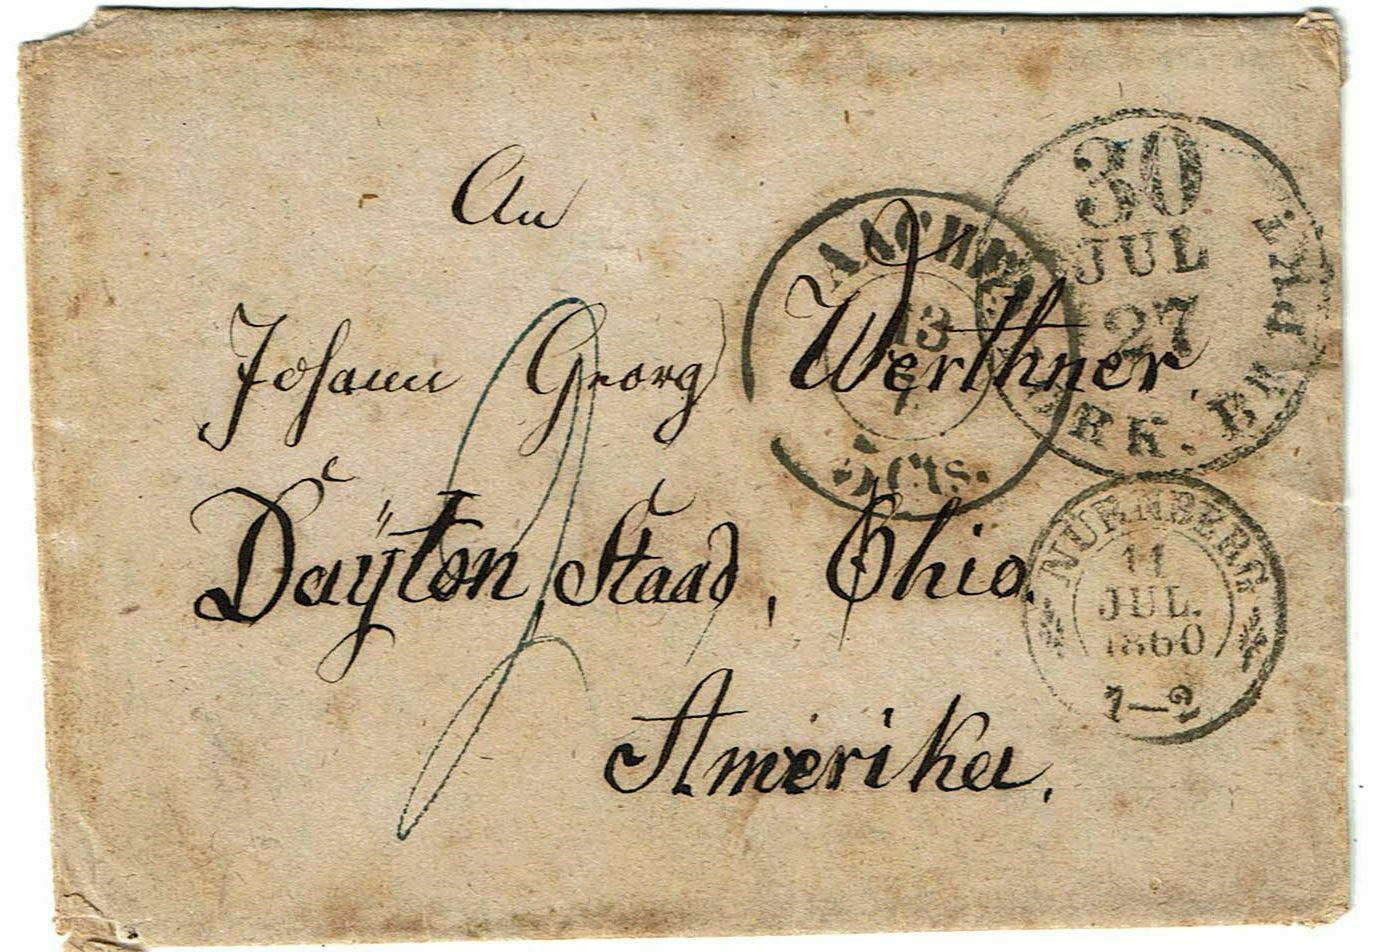 An
Johann Georg Werthner
Daÿton Staad, Ohio.
Amerika.
AACHEN
13
7
5 Cts.
30
JUL
27
YORK. BR PKT.
NÜRNBERG
11
JUL.
1860
1—2